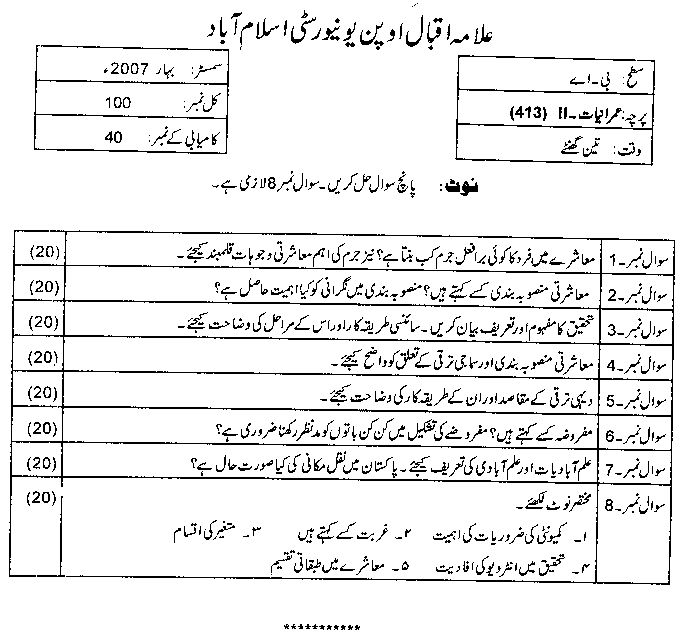 علامہ اقبال اوپن یونیورسٹی اسلام آباد
سطح: بی۔اے
پرچہ: عمرانیات۔II (413)
وقت: تین گھنٹے
سمسٹر: بہار 2007ء
کل نمبر: 100
کامیابی کے نمبر: 40
نوٹ: پانچ سوال حل کریں۔ سوال نمبر 8 لازمی ہے۔
سوال نمبر۔1 معاشرے میں فرد کا کوئی برا فعل جرم کب بنتا ہے؟ نیز جرم کی اہم معاشرتی وجوہات قلمبند کیجئے۔ (20)
سوال نمبر۔2 معاشرتی منصوبہ بندی کسے کہتے ہیں؟ منصوبہ بندی میں نگرانی کو کیا اہمیت حاصل ہے؟ (20)
سوال نمبر۔3 تحقیق کا مفہوم اور تعریف بیان کریں۔ سائنسی طریقہ کار اور اس کے مراحل کی وضاحت کیجئے۔ (20)
سوال نمبر۔4 معاشرتی منصوبہ بندی اور سماجی ترقی کے تعلق کو واضح کیجئے۔ (20)
سوال نمبر۔5 دیہی ترقی کے مقاصد اور ان کے طریقہ کار کی وضاحت کیجئے۔ (20)
سوال نمبر۔6 مفروضہ کسے کہتے ہیں؟ مفروضے کی تشکیل میں کن کن باتوں کو مدنظر رکھنا ضروری ہے؟ (20)
سوال نمبر۔7 علم آبادیات اور علم آبادی کی تعریف کیجئے۔ پاکستان میں نقل مکانی کی کیا صورت حال ہے؟ (20)
سوال نمبر۔8 مختصر نوٹ لکھئے۔ (20)
۱۔ کمیونٹی کی ضروریات کی اہمیت ۲۔ غربت کسے کہتے ہیں ۳۔ متغیر کی اقسام
۴۔ تحقیق میں انٹرویو کی افادیت ۵۔ معاشرے میں طبقاتی تقسیم
***********